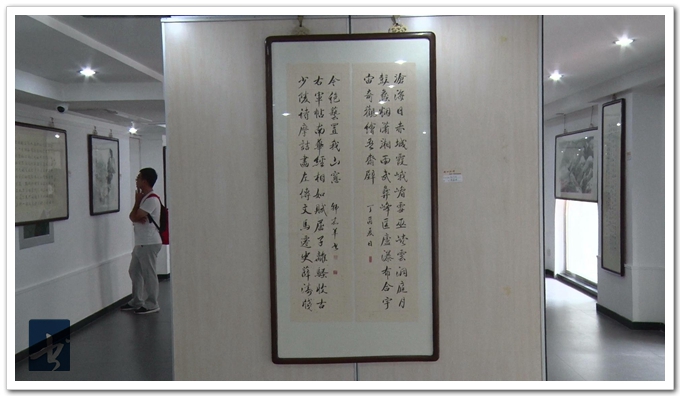 滄海日赤城霞峨眉雪巫峡雲洞庭月
彭蠡烟瀟湘雨武彝峰匡廬瀑布合宇
宙奇觀繪吾齋壁
丁酉夏日
少陵詩摩詰畫左傳文馬遷史薛濤牋
右軍帖南華經相如賦屈子離騷收古
今絕藝置我山窓